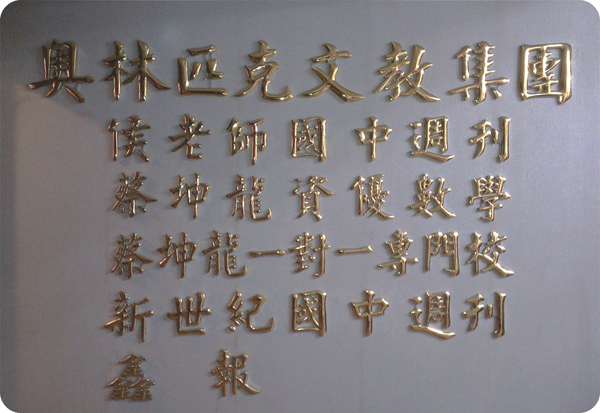 奧林匹克文教集團
侯老師國中週刊
蔡坤龍資優數學
蔡坤龍一對一專門校
新世紀國中週刊
鑫報